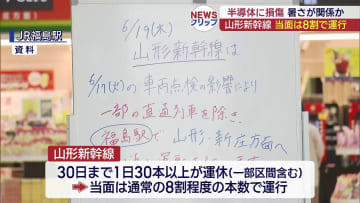 JR福島駅
資料
NEWS
クリック
半導体に損傷 暑さが関係か
山形新幹線 当面は8割で運行
6/19(木)
山形新幹線は
6/17(火)の車両点検の影響により
一部の直通列車を除き
福島駅で山形・新庄方面へ
山形新幹線
30日まで1日30本以上が運休(一部区間含む)
➡当面は通常の8割程度の本数で運行